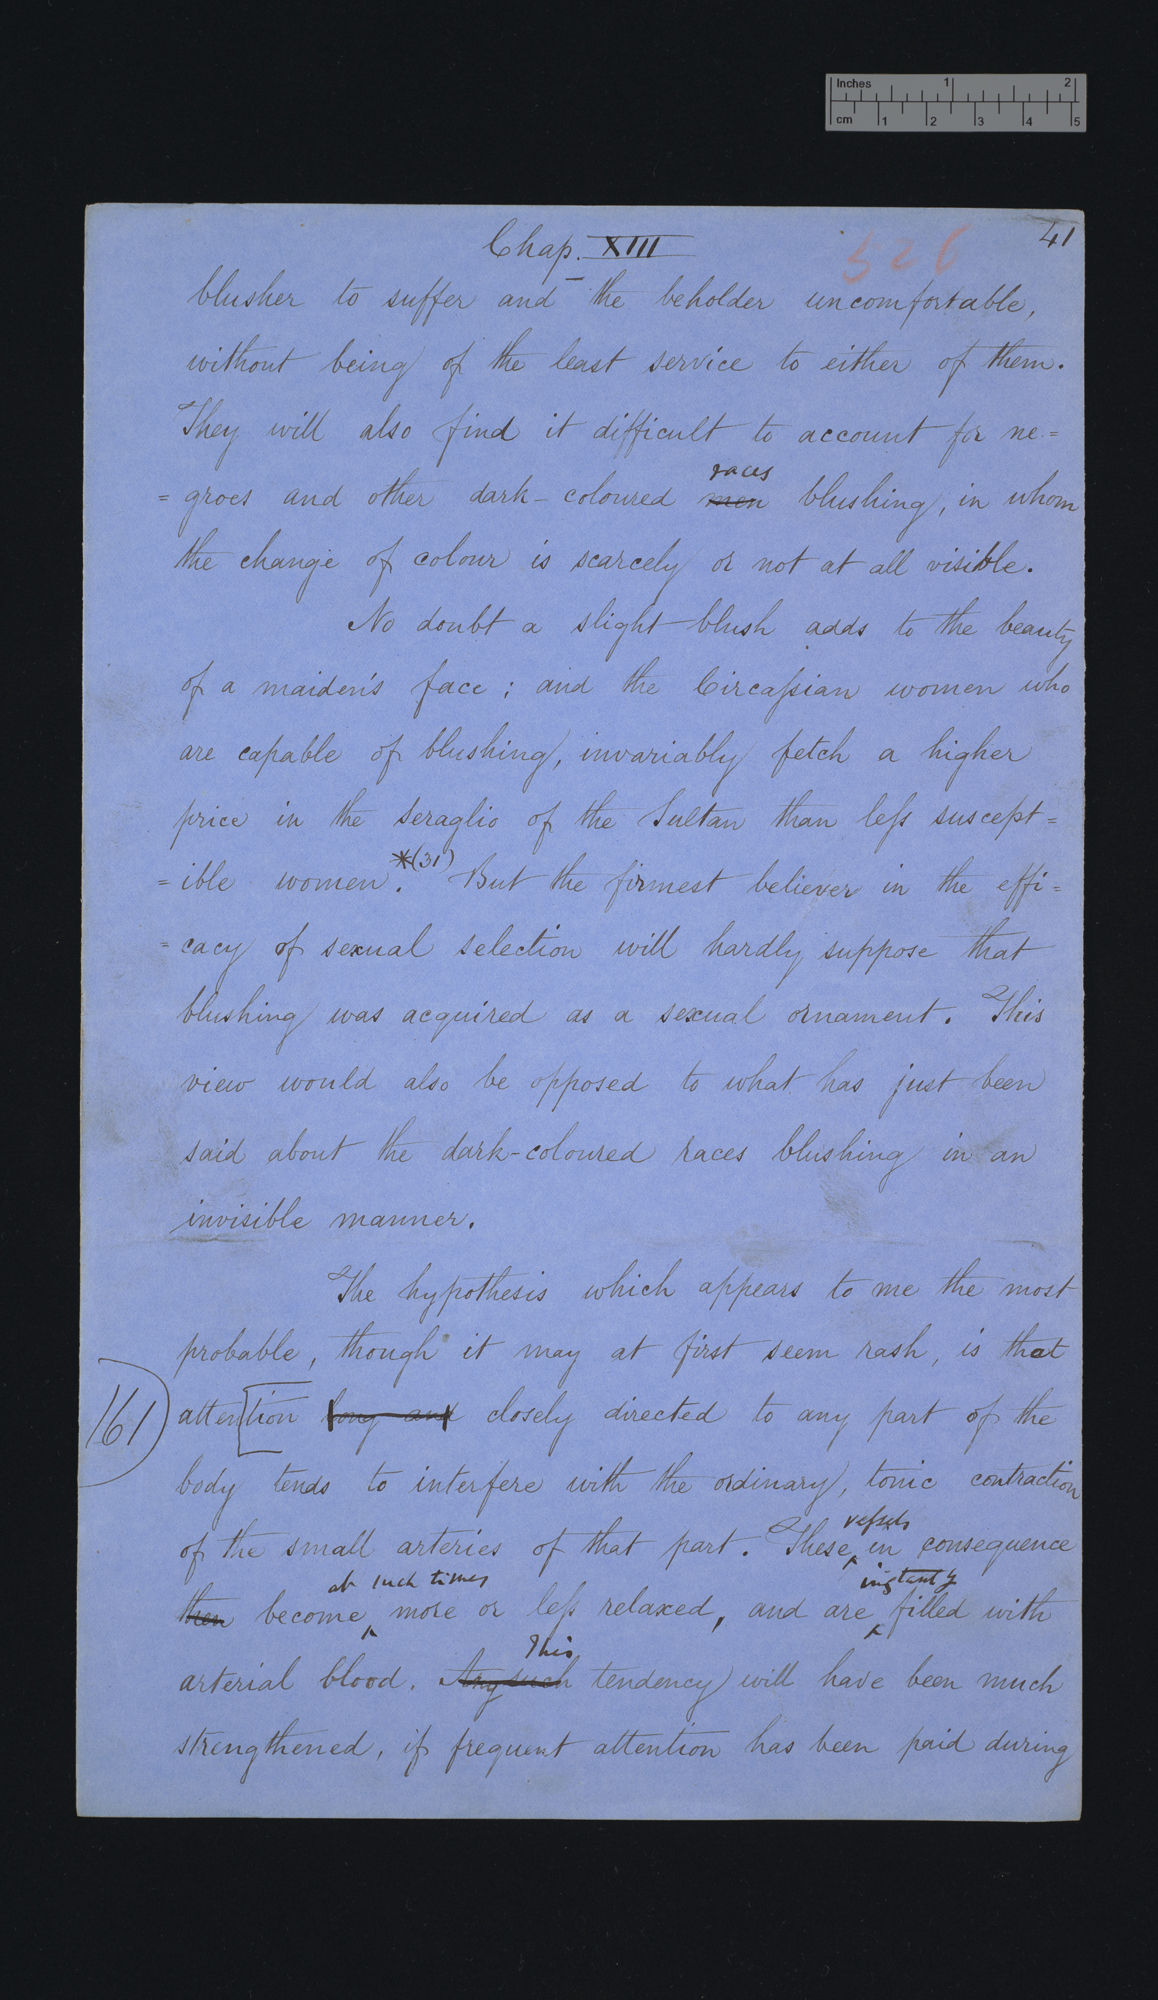 Inches 1 2
cm 1 2 3 4 5
Chap. XIII 526 41
blusher to suffer and the beholder uncomfortable,
without being of the least service to either of them.
They will also find it difficult to account for ne=
races
=groes and other dark-coloured men blushing, in whom
the change of colour is scarcely or not at all visible.
No doubt a slight blush adds to the beauty
of a maiden's face; and the Circaſsian women who
are capable of blushing, invariably fetch a higher
price in the seraglio of the Sultan than leſs suscept=
=ible women.*(31) But the firmest believer in the effi=
=cacy of sexual selection will hardly suppose that
blushing was acquired as a sexual ornament. This
view would also be opposed to what has just been
said about the dark-coloured races blushing in an
invisible manner.
The hypothesis which appears to me the most
probable, though it may at first seem rash, is that
161) atten[tion long and closely directed to any part of the
body tends to interfere with the ordinary, tonic contraction
vessels
of the small arteries of that part. These in consequence
at such times instantly
then become more or leſs relaxed, and are filled with
This
arterial blood. Any such tendency will have been much
strengthened, if frequent attention has been paid during